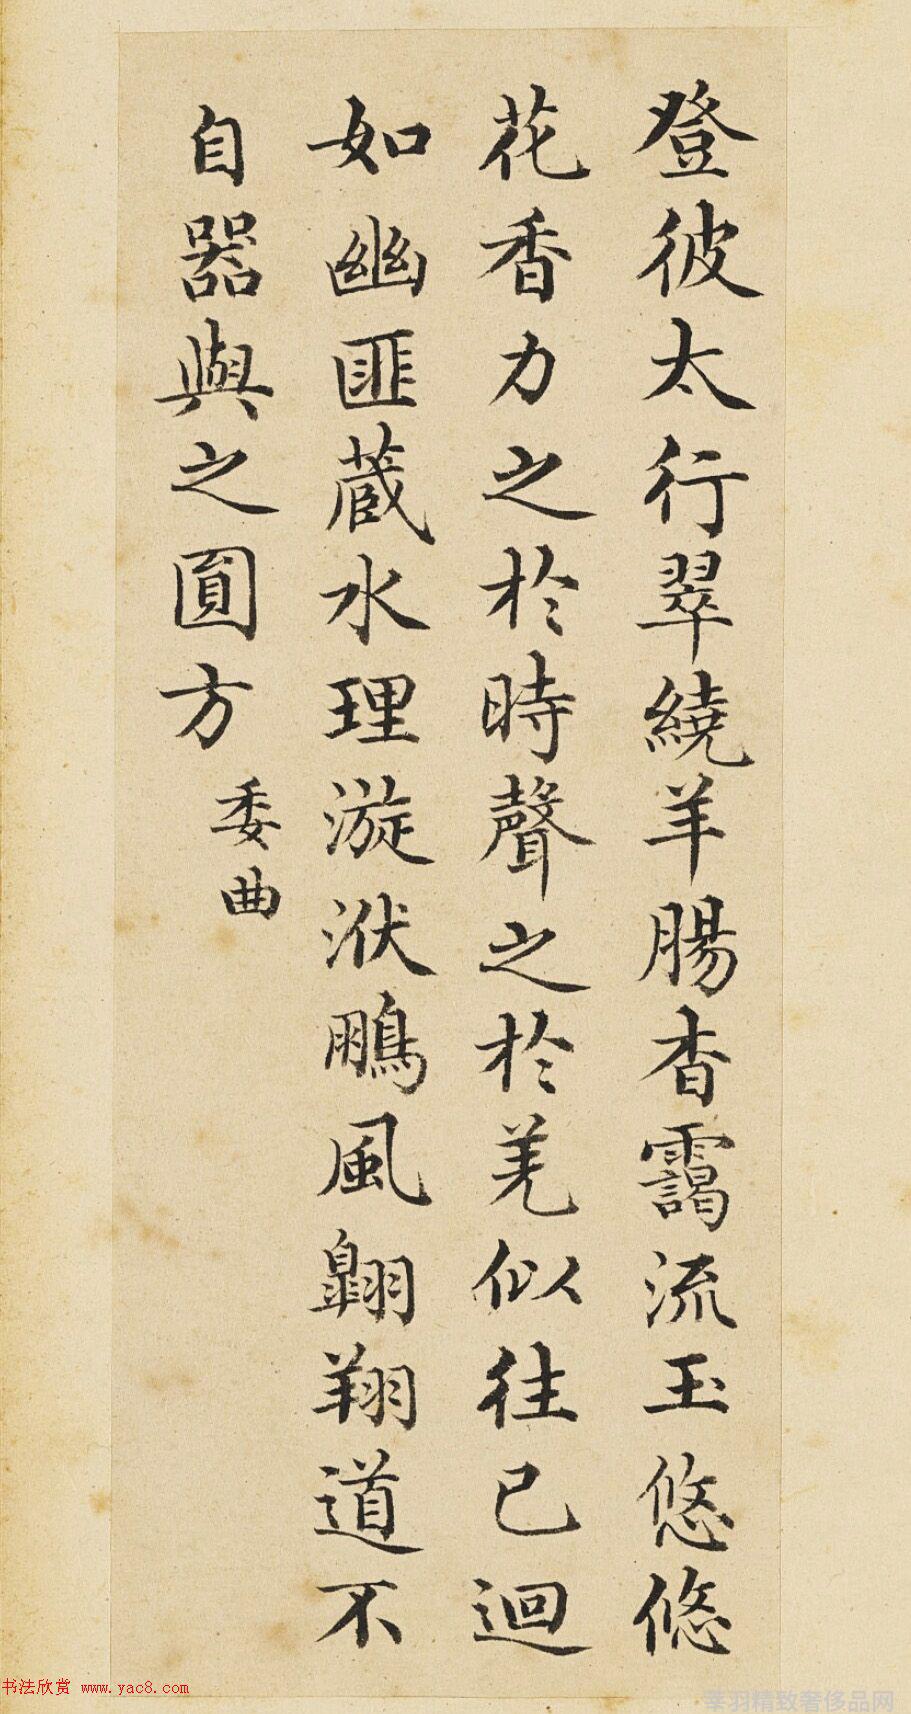 登彼太行翠繞羊腸杳靄流玉悠悠
花香力之於時聲之於羌似往已迴
如幽匪蔵水理漩洑鵬風翺翔道不
自器與之圎方
委曲
书法欣赏 www.yac8.com
莘羽精致奢侈品网